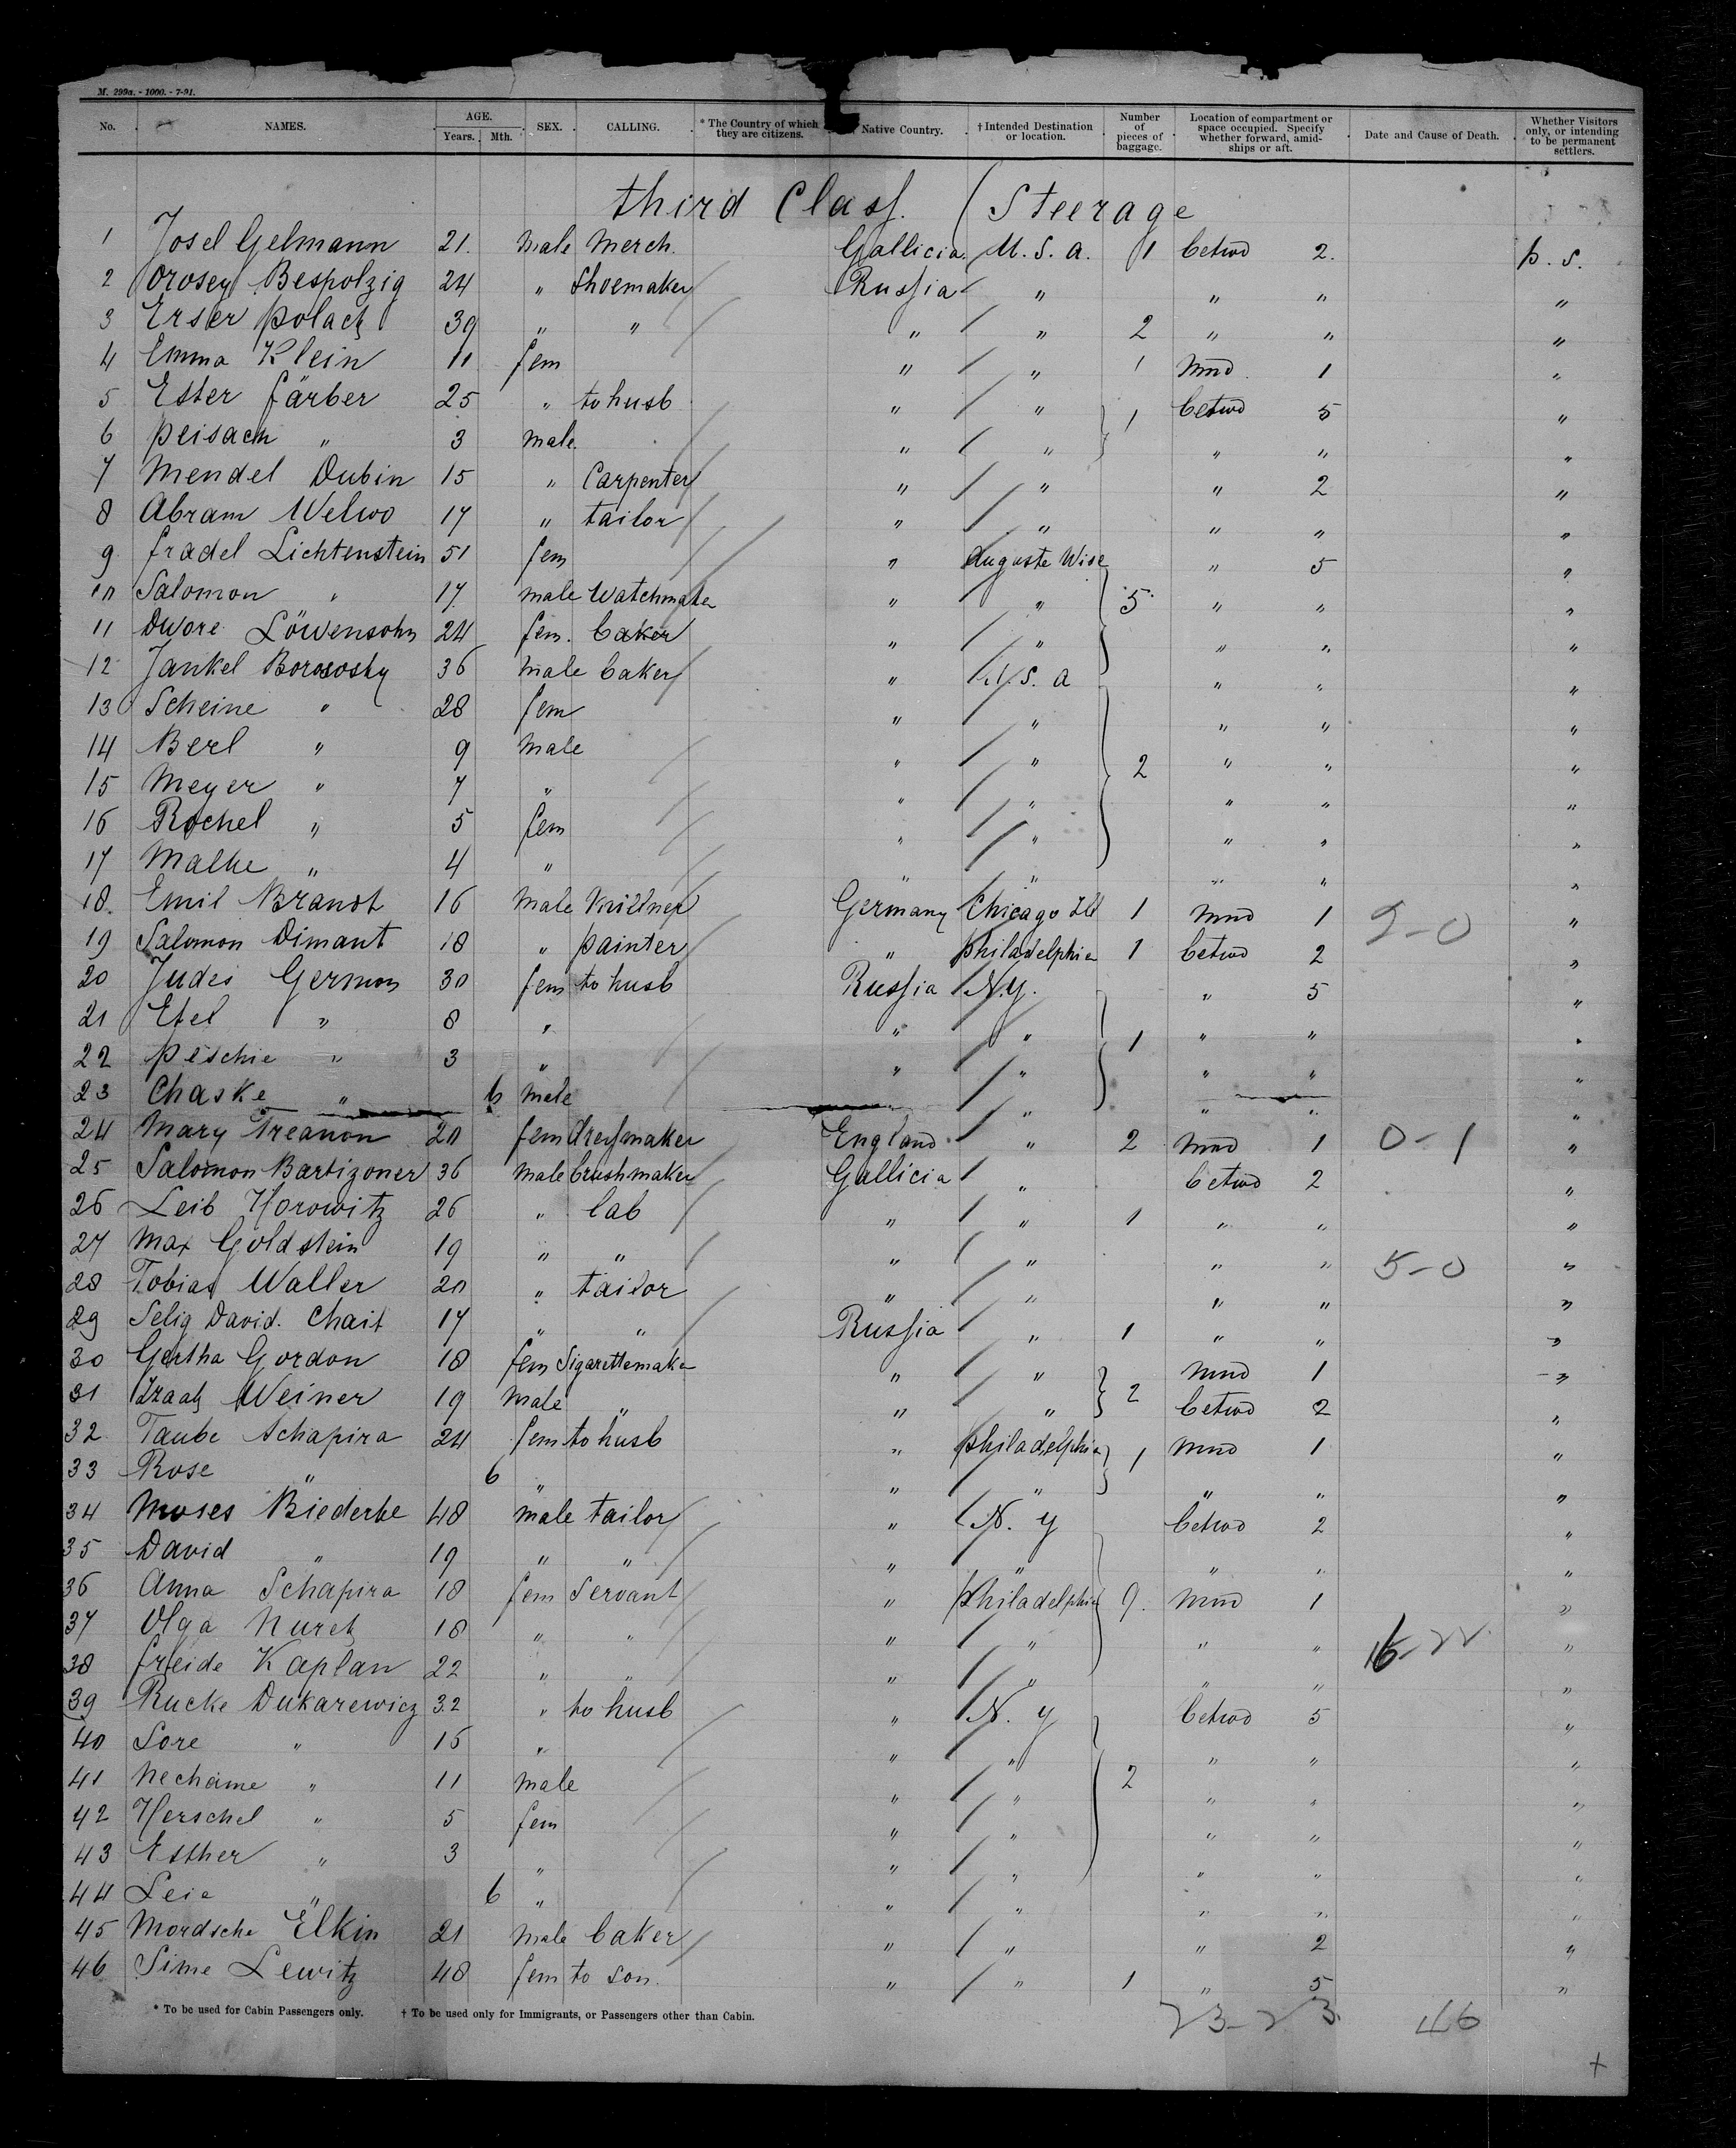 M. 299a. - 1000. - 7-91.
No. NAMES. AGE. Years. Mth. SEX. CALLING. * The Country of which they are citizens. Native Country. † Intended Destination or location. Number of pieces of baggage. Location of compartment or space occupied. Specify whether forward, amid-ships or aft. Date and Cause of Death. Whether Visitors only, or intending to be permanent settlers.
third Class. (Steerage
1 Josel Gelmann 21. male Merch. Gallicia. U. S. a. 1 betwd 2. p. s.
2 Orosey Bespolzig 24 " Shoemaker Russia " " " "
3 Erser Polack 39 " " " " 2 " " "
4 Emma Klein 11 fem " " 1 mnd 1 "
5 Ester färber 25 " to husb " " 1 betwd 5 "
6 peisach " 3 male. " " " " "
7 Mendel Dubin 15 " Carpenter " " " 2 "
8 Abram Welwo 17 " tailor " " " " "
9. fradel Lichtenstein 51 fem " Auguste Wise " 5 "
10 Salomon " 17. male Watchmaker " " 5 " " "
11 Dwore Löwensohn 24 fem. baker " " " " "
12 Jankel Borososky 36 male baker " U. S. a " " "
13 Scheine " 28 fem " " " " "
14 Berl " 9 male " " 2 " " "
15 Meyer " 7 " " " " " "
16 Rochel " 5 fem " " " " "
17 Malke " 4 " " " " " "
18. Emil Brandt 16 male Germany Chicago Ill 1 mnd 1 "
19 Salomon Dimant 18 " painter " philadelphia 1 betwd 2 "
20 Judes Germon 30 fem to husb Russia N.Y. " 5 "
21 Etel " 8 " " " 1 " " "
22 peschie " 3 " " " " " "
23 Chaske " 6 male " " " "
24 Mary Treanon 20 fem dressmaker England " 2 mnd 1 0-1 "
25 Salomon Bartizoner 36 male brushmaker Gallicia " betwd 2 "
26 Leib Horowitz 26 " lab " " 1 " " "
27 Max Goldstein 19 " " " " " " 5-0 "
28 Tobias Waller 20 " tailor " " " " "
29 Selig David. Chait 17 " " Russia " 1 " " "
30 Gertha Gordon 18 fem Sigarettemaker " " 2 mnd 1 "
31 Izaak Weiner 19 male " " " betwd 2 "
32 Taube Schapira 24 fem to husb " philadelphia 1 mnd 1 "
33 Rose " 6 " " " " " "
34 Moses Biederke 48 male tailor " N. Y betwd 2 "
35 David " 19 " " " " " " "
36 Anna Schapira 18 fem Servant " philadelphia 9. mnd 1 "
37 Olga Nurek 18 " " " " " " 16-22 "
38 freide Kaplan 22 " " " " " " "
39 Rucke Dukarewicz 32 " to husb " N. Y betwd 5 "
40 Sore " 15 " " " " " "
41 Nechame " 11 male " " 2 " " "
42 Herschel " 5 fem " " " " "
43 Esther " 3 " " " " " "
44 Leie " 6 " " " " " "
45 Mordsche Elkin 21 male baker " " " 2 "
46 Sime Lewitz 48 fem to son. " " 1 " 5 "
* To be used for Cabin Passengers only. † To be used only for Immigrants, or Passengers other than Cabin.
23-23 46